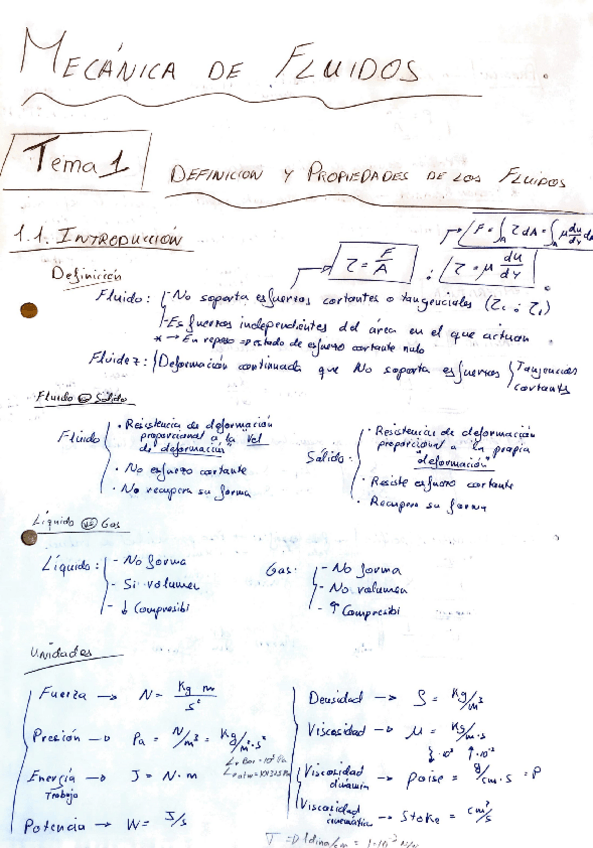 MECÁNICA DE FLUIDOS
Tema 1 DEFINICION Y PROPIEDADES DE LOS FLUIDOS
1.1. INTRODUCCIÓN
F = ∫A τ dA = ∫A μ du/dy dA
τ = F/A ; τ = μ du/dy
Definición
Fluido: - No soporta esfuerzos cortantes o tangenciales
- Esfuerzos independientes del área en el que actuan
* → En reposo => estado de esfuerzo cortante nulo
Fluidez: Deformación continuada que No soporta esfuerzos Tangenciales cortantes
Fluido vs Sólido
Fluido
· Resistencia de deformación
proporcional a la vel
de deformación
· No esfuerzo cortante
· No recupera su forma
Sólido:
· Resistencia de deformación
proporcional a la propia
"deformación"
· Resiste esfuerzo cortante
· Recupera su forma
Líquido vs Gas
Líquido: - No forma
- Si volumen
- ↓ Compresibi
Gas: - No forma
- No volumen
- ↑ Compresibi
Unidades
Fuerza → N = Kg m / s²
Presión → Pa = N/m² = Kg/m·s²
Energía → J = N·m
Trabajo
Potencia → W = J/s
Densidad → ρ = Kg/m³
Viscosidad → μ = Kg/m·s
Viscosidad dinámica → poise = g/cm·s = P
Viscosidad cinemática → Stoke = cm²/s